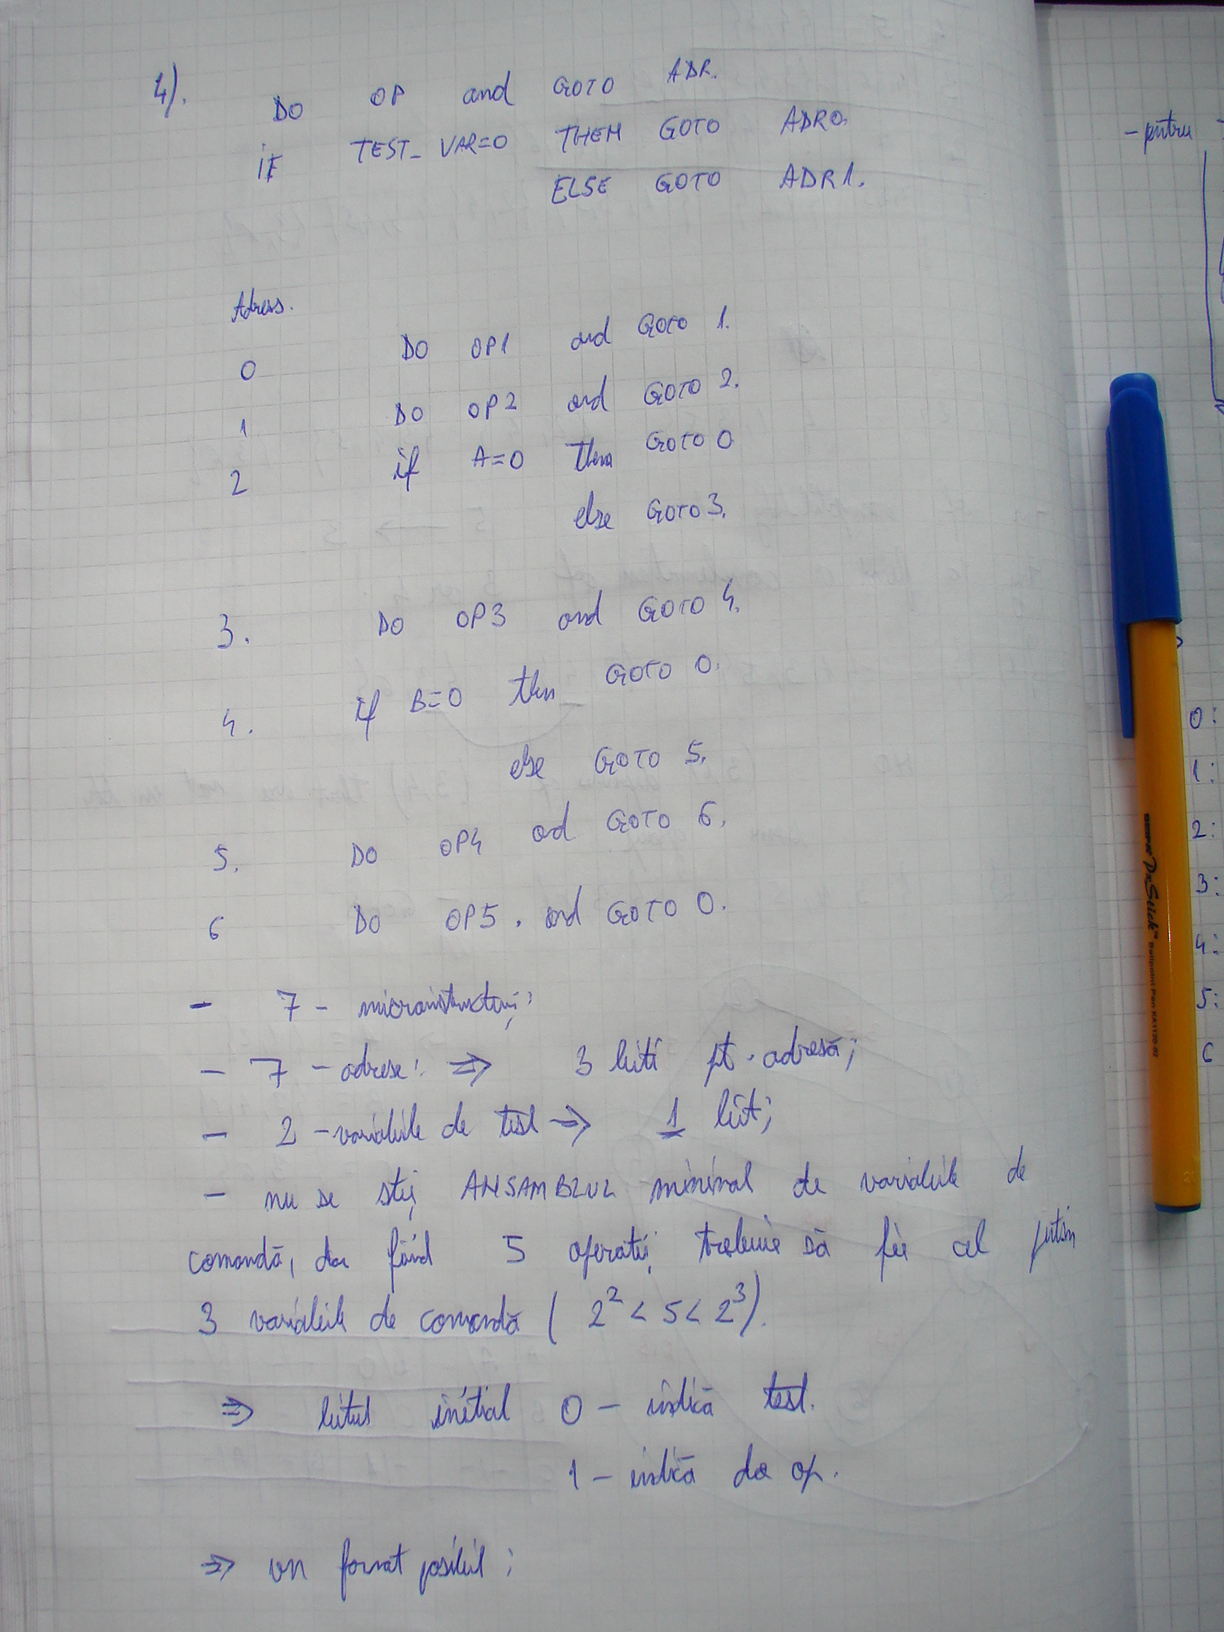 4).
DO OP and GOTO ADR.
if TEST_VAR=0 THEM GOTO ADR0.
ELSE GOTO ADR1.
Adress.
0 DO OP1 and GOTO 1.
1 DO OP2 and GOTO 2.
2 if A=0 then GOTO 0
else GOTO 3.
3. DO OP3 and GOTO 4.
4. if B=0 then GOTO 0.
else GOTO 5.
5. DO OP4 and GOTO 6.
6 DO OP5. and GOTO 0.
- 7 - microinstrucțiuni;
- 7 - adrese: ⇒ 3 biti pt. adresă;
- 2 - variabile de test ⇒ 1 bit;
- nu se știe ANSAMBLUL minimal de variabile de
comandă, dar fiind 5 operatii, trebuie să fie cel putin
3 variabile de comandă ( 2² < 5 < 2³).
⇒ bitul initial 0 - indică test.
1 - indică do op.
⇒ un format posibil:
- pentru
0:
1:
2:
3:
4:
5:
6